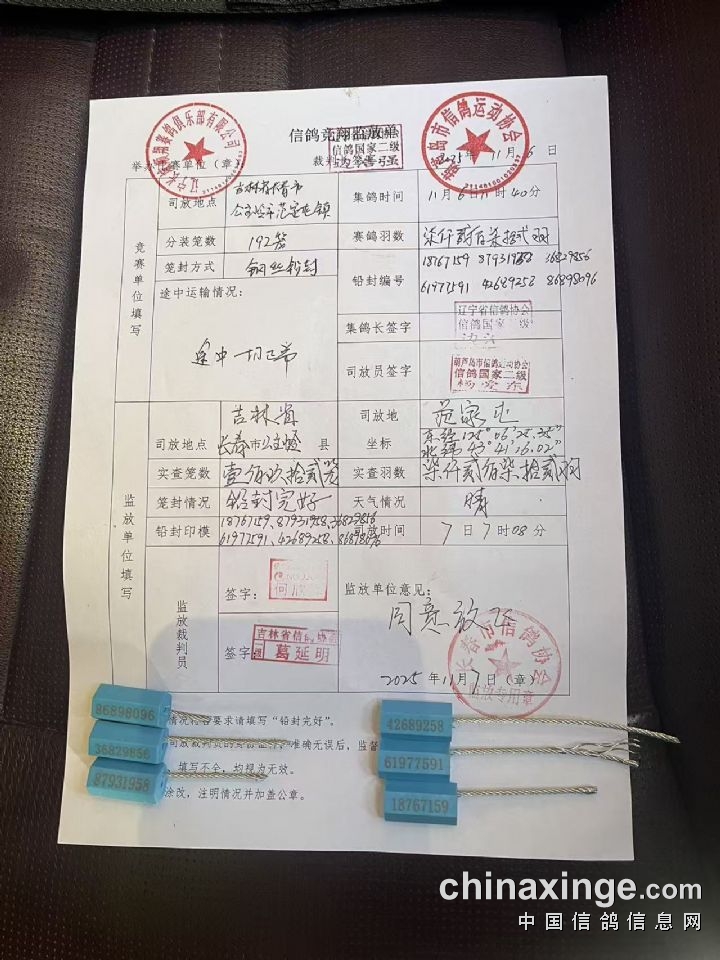 信鸽竞翔监放单
举办比赛单位（章）
裁判员签字
信鸽国家二级
2025年11月6日
葫芦岛市信鸽运动协会
竞赛单位填写
司放地点
吉林省长春市
公主岭市范家屯镇
集鸽时间
11月6日11时40分
分装笼数
192笼
赛鸽羽数
柒仟贰佰柒拾贰羽
笼封方式
钢丝铅封
铅封编号
18767159 87931958 36829856
61977591 42689258 86898096
途中运输情况：
途中一切正常
集鸽长签字
辽宁省信鸽协会
信鸽国家一级
司放员签字
葫芦岛市信鸽运动协会
信鸽国家二级
监放单位填写
司放地点
吉林省
长春市公主岭县
司放地
坐标
范家屯
东经125°06′28.38″
北纬43°41′16.02″
实查笼数
壹佰玖拾贰笼
实查羽数
柒仟贰佰柒拾贰羽
笼封情况
铅封完好
天气情况
晴
铅封印模
18767159、87931958、36829856
61977591、42689258、86898096
司放时间
7日7时08分
监放裁判员
签字：
签字
吉林省信鸽协会
葛延明
监放单位意见：
同意放飞
长春市信鸽协会
监放专用章
2025年11月7日（章）
情况符合要求请填写“铅封完好”。
准确无误后，监督
填写不全，均视为无效。
涂改，注明情况并加盖公章。
86898096
36829856
87931958
42689258
61977591
18767159
chinaxinge.com
中国信鸽信息网